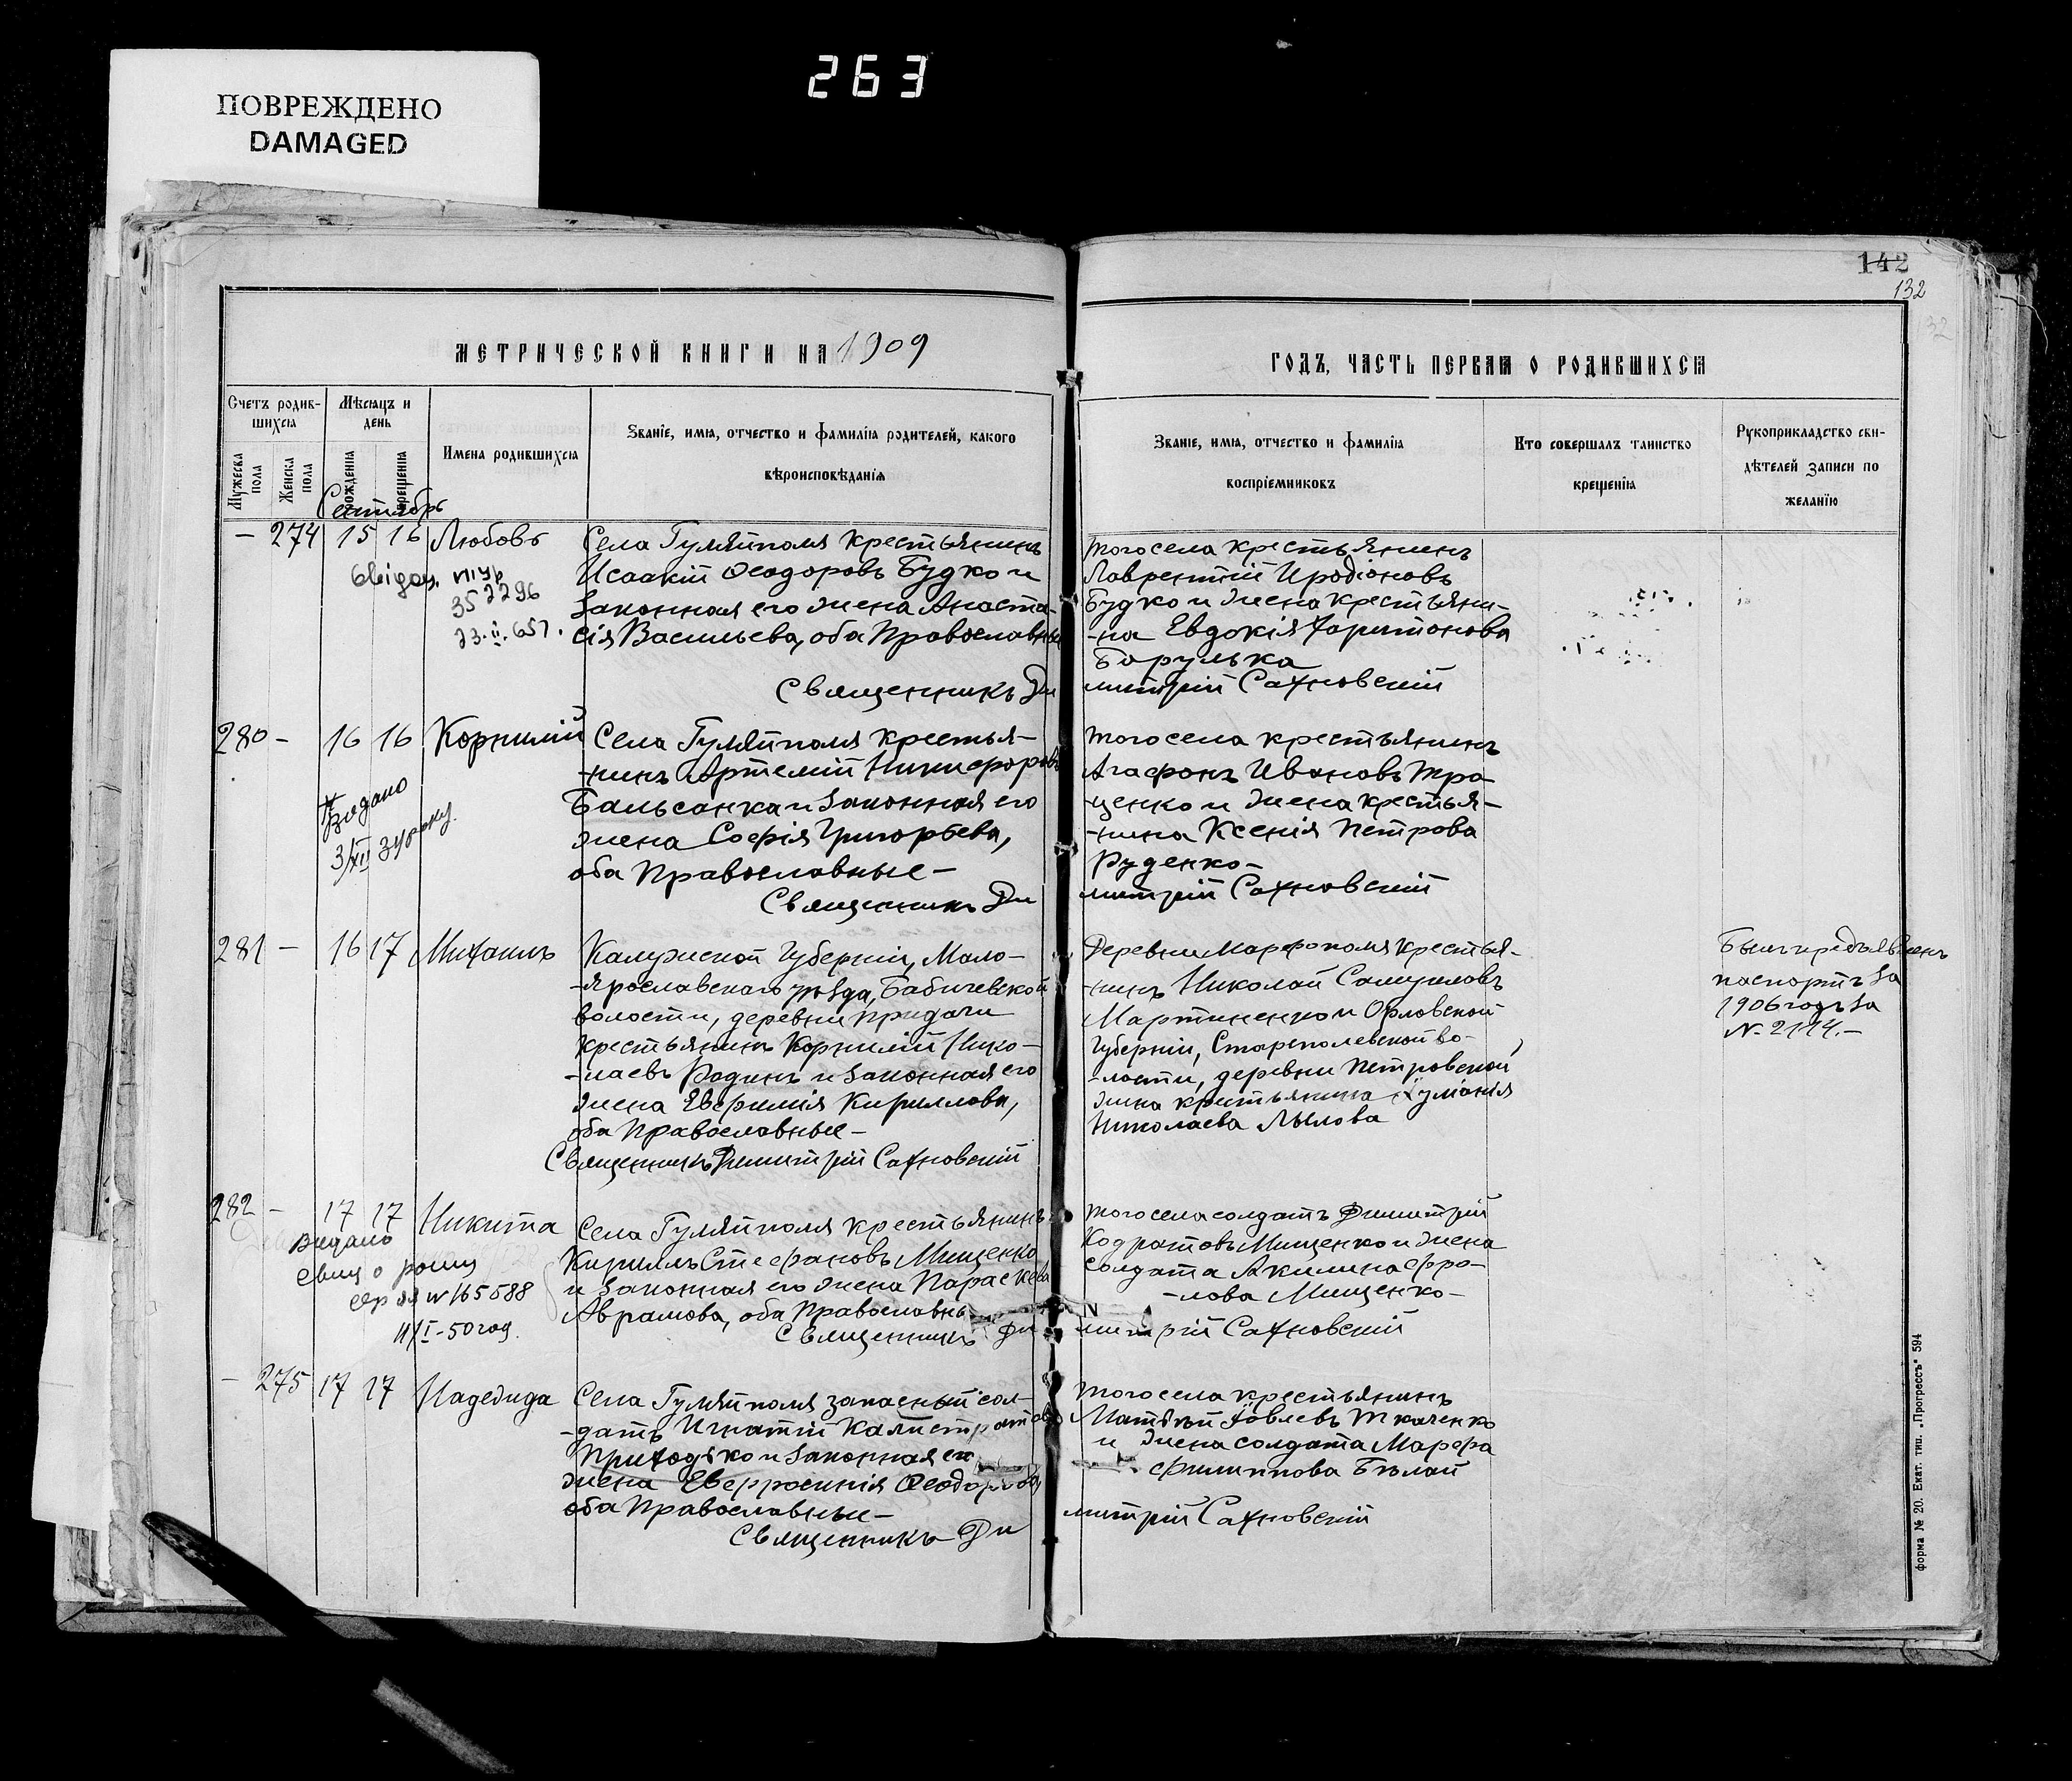 263
ПОВРЕЖДЕНО
DAMAGED
142
132
МЕТРИЧЕСКОЙ КНИГИ НА 1909
ГОДЪ, ЧАСТЬ ПЕРВАЯ О РОДИВШИХСЯ
Счетъ родив-
шихся
Мужеска пола
Женска пола
Мѣсяцъ и
день
рожденія
крещенія
Имена родившихся
Званіе, имя, отчество и фамилія родителей, какого
вѣроисповѣданія
Званіе, имя, отчество и фамилія
воспріемниковъ
Кто совершалъ таинство
крещенія
Рукоприкладство сви-
дѣтелей записи по
желанію
Сентябрь
- 274 15 16 Любовь
Села Гуляйполя крестьянинъ
Исаакій Ѳеодоровъ Будко и
законная его жена Анаста-
сія Васильева, оба Православные
Священникъ Ди
того села крестьянинъ
Лаврентій Иродіоновъ
Будко и жена крестьяни-
-на Евдокія Харитонова
Барулька
митрій Сахновскій
280 - 16 16 Корнилій
Видано
3/XII 34 року.
Села Гуляйполя крестья-
-нинъ Артемій Никифоровъ
Бальсанка и законная его
жена Софія Григорьева,
оба Православные -
Священникъ Ди
того села крестьянинъ
Агафонъ Ивановъ Тра-
-ценко и жена крестья-
-нина Ксенія Петрова
Руденко -
митрій Сахновскій
281 - 16 17 Михаилъ
Калужской Губерніи, Мало-
-ярославскаго уѣзда, Бабичевской
волости, деревни Придачи
крестьянинъ Корнилій Нико-
-лаевъ Родинъ и законная его
жена Евфимія Кириллова,
оба Православные -
Священникъ Димитрій Сахновскій
Деревни Марфополя крестья-
-нинъ Николай Самуиловъ
Мартиненко и Орловской
Губерніи, Старополевской во-
-лости, деревни Петровской
жена крестьянина
Николаева Лылова
Былъ предъявленъ
паспортъ за
1906 годъ за
№ 2114. -
282 - 17 17 Никита
Видано
Свид о рожд
№ 165588
11/I-50 год.
Села Гуляйполя крестьянинъ
Кириллъ Стефановъ Мищенко
и законная его жена Параскева
Аврамова, оба Православны
Священникъ Ди
того села солдатъ Димитрій
Кодратовъ Мищенко и жена
солдата Акилина Фро-
-лова Мищенко -
митрій Сахновскій
- 275 17 17 Надежда
Села Гуляйполя запасный сол-
-датъ Игнатій Калистратовъ
Приходько и законная его
жена Евфросинія Ѳеодорова,
оба Православные -
Священникъ Ди
того села крестьянинъ
Матѳѣй Іовлевъ Ткаченко
и жена солдата Марфа
Филиппова Бѣлай
митрій Сахновскій
форма № 20. Екат. тип. „Прогрессъ" 594